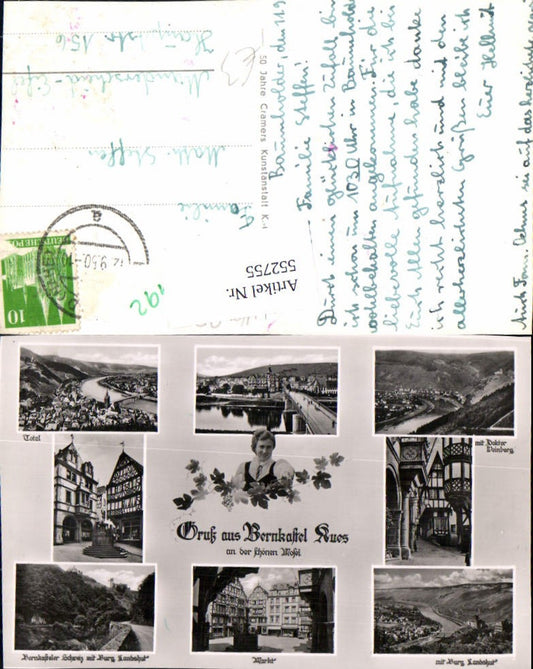 Baumholder, den 11.9
Familie Steffen!
Durch einen glücklichen Zufall bin
ich schon um 10 30 Uhr in Baumholder
wohlbehalten angekommen. Für die
liebevolle Aufnahme, die ich bei
Euch Allen gefunden habe danke
ich recht herzlich und mit den
allerherzlichsten Grüßen bleibe ich
Euer Hellmut
Auch Fam.
sei auf das herzlichste
50 Jahre Cramers Kunstanstalt K.-
Familie
Math. Steffen
Manderscheid-Eifel
Hauptstr. 156
DEUTSCHE PO
10
12.9.50-10
a
192
Artikel Nr.
552755
Total
mit Doktor
Weinberg
Gruß aus Bernkastel Kues
an der schönen Mosel
"Bernkasteler Schweiz mit Burg Landshut"
"Markt"
mit Burg Landshut"